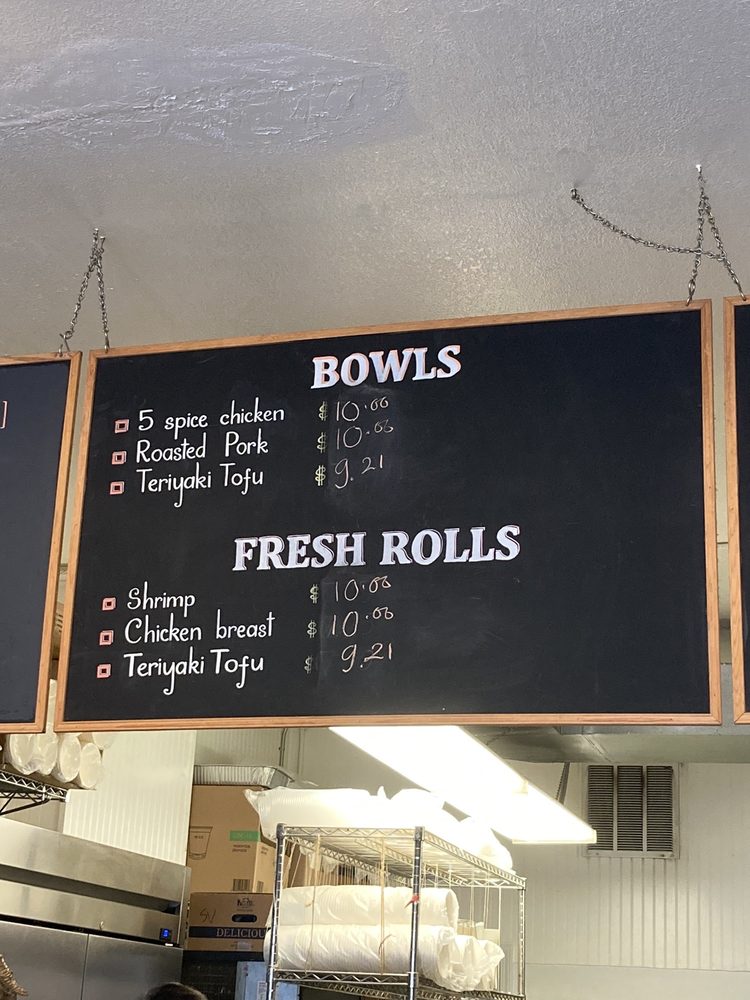 BOWLS
5 spice chicken $ 10.00
Roasted Pork $ 10.00
Teriyaki Tofu $ 9.21
FRESH ROLLS
Shrimp $ 10.00
Chicken breast $ 10.00
Teriyaki Tofu $ 9.21
DELICIOU